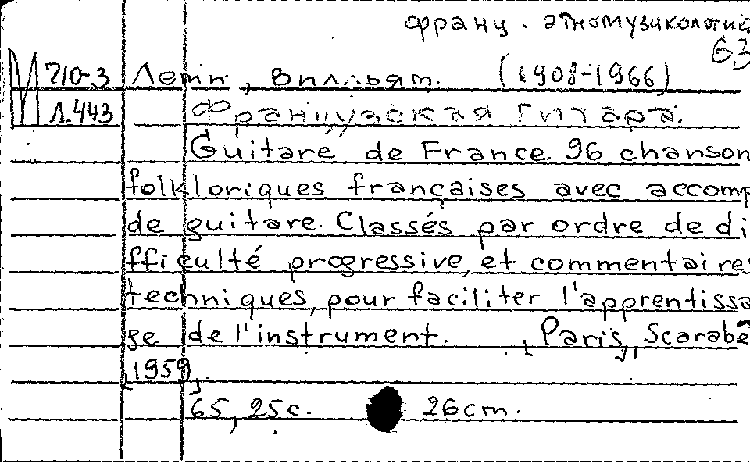 франц. этномузикология
63
М 710-3 Лемп, Вилльям. (1908-1966)
Л.443 Французская гитара.
Guitare de France. 96 chanson
folkloriques françaises avec accomp
de guitare. Classés par ordre de di
fficulté progressive, et commentaires
techniques, pour faciliter l'apprentissa
ge de l'instrument. , Paris, Scarabé
1959,
65, 25c. 26cm.